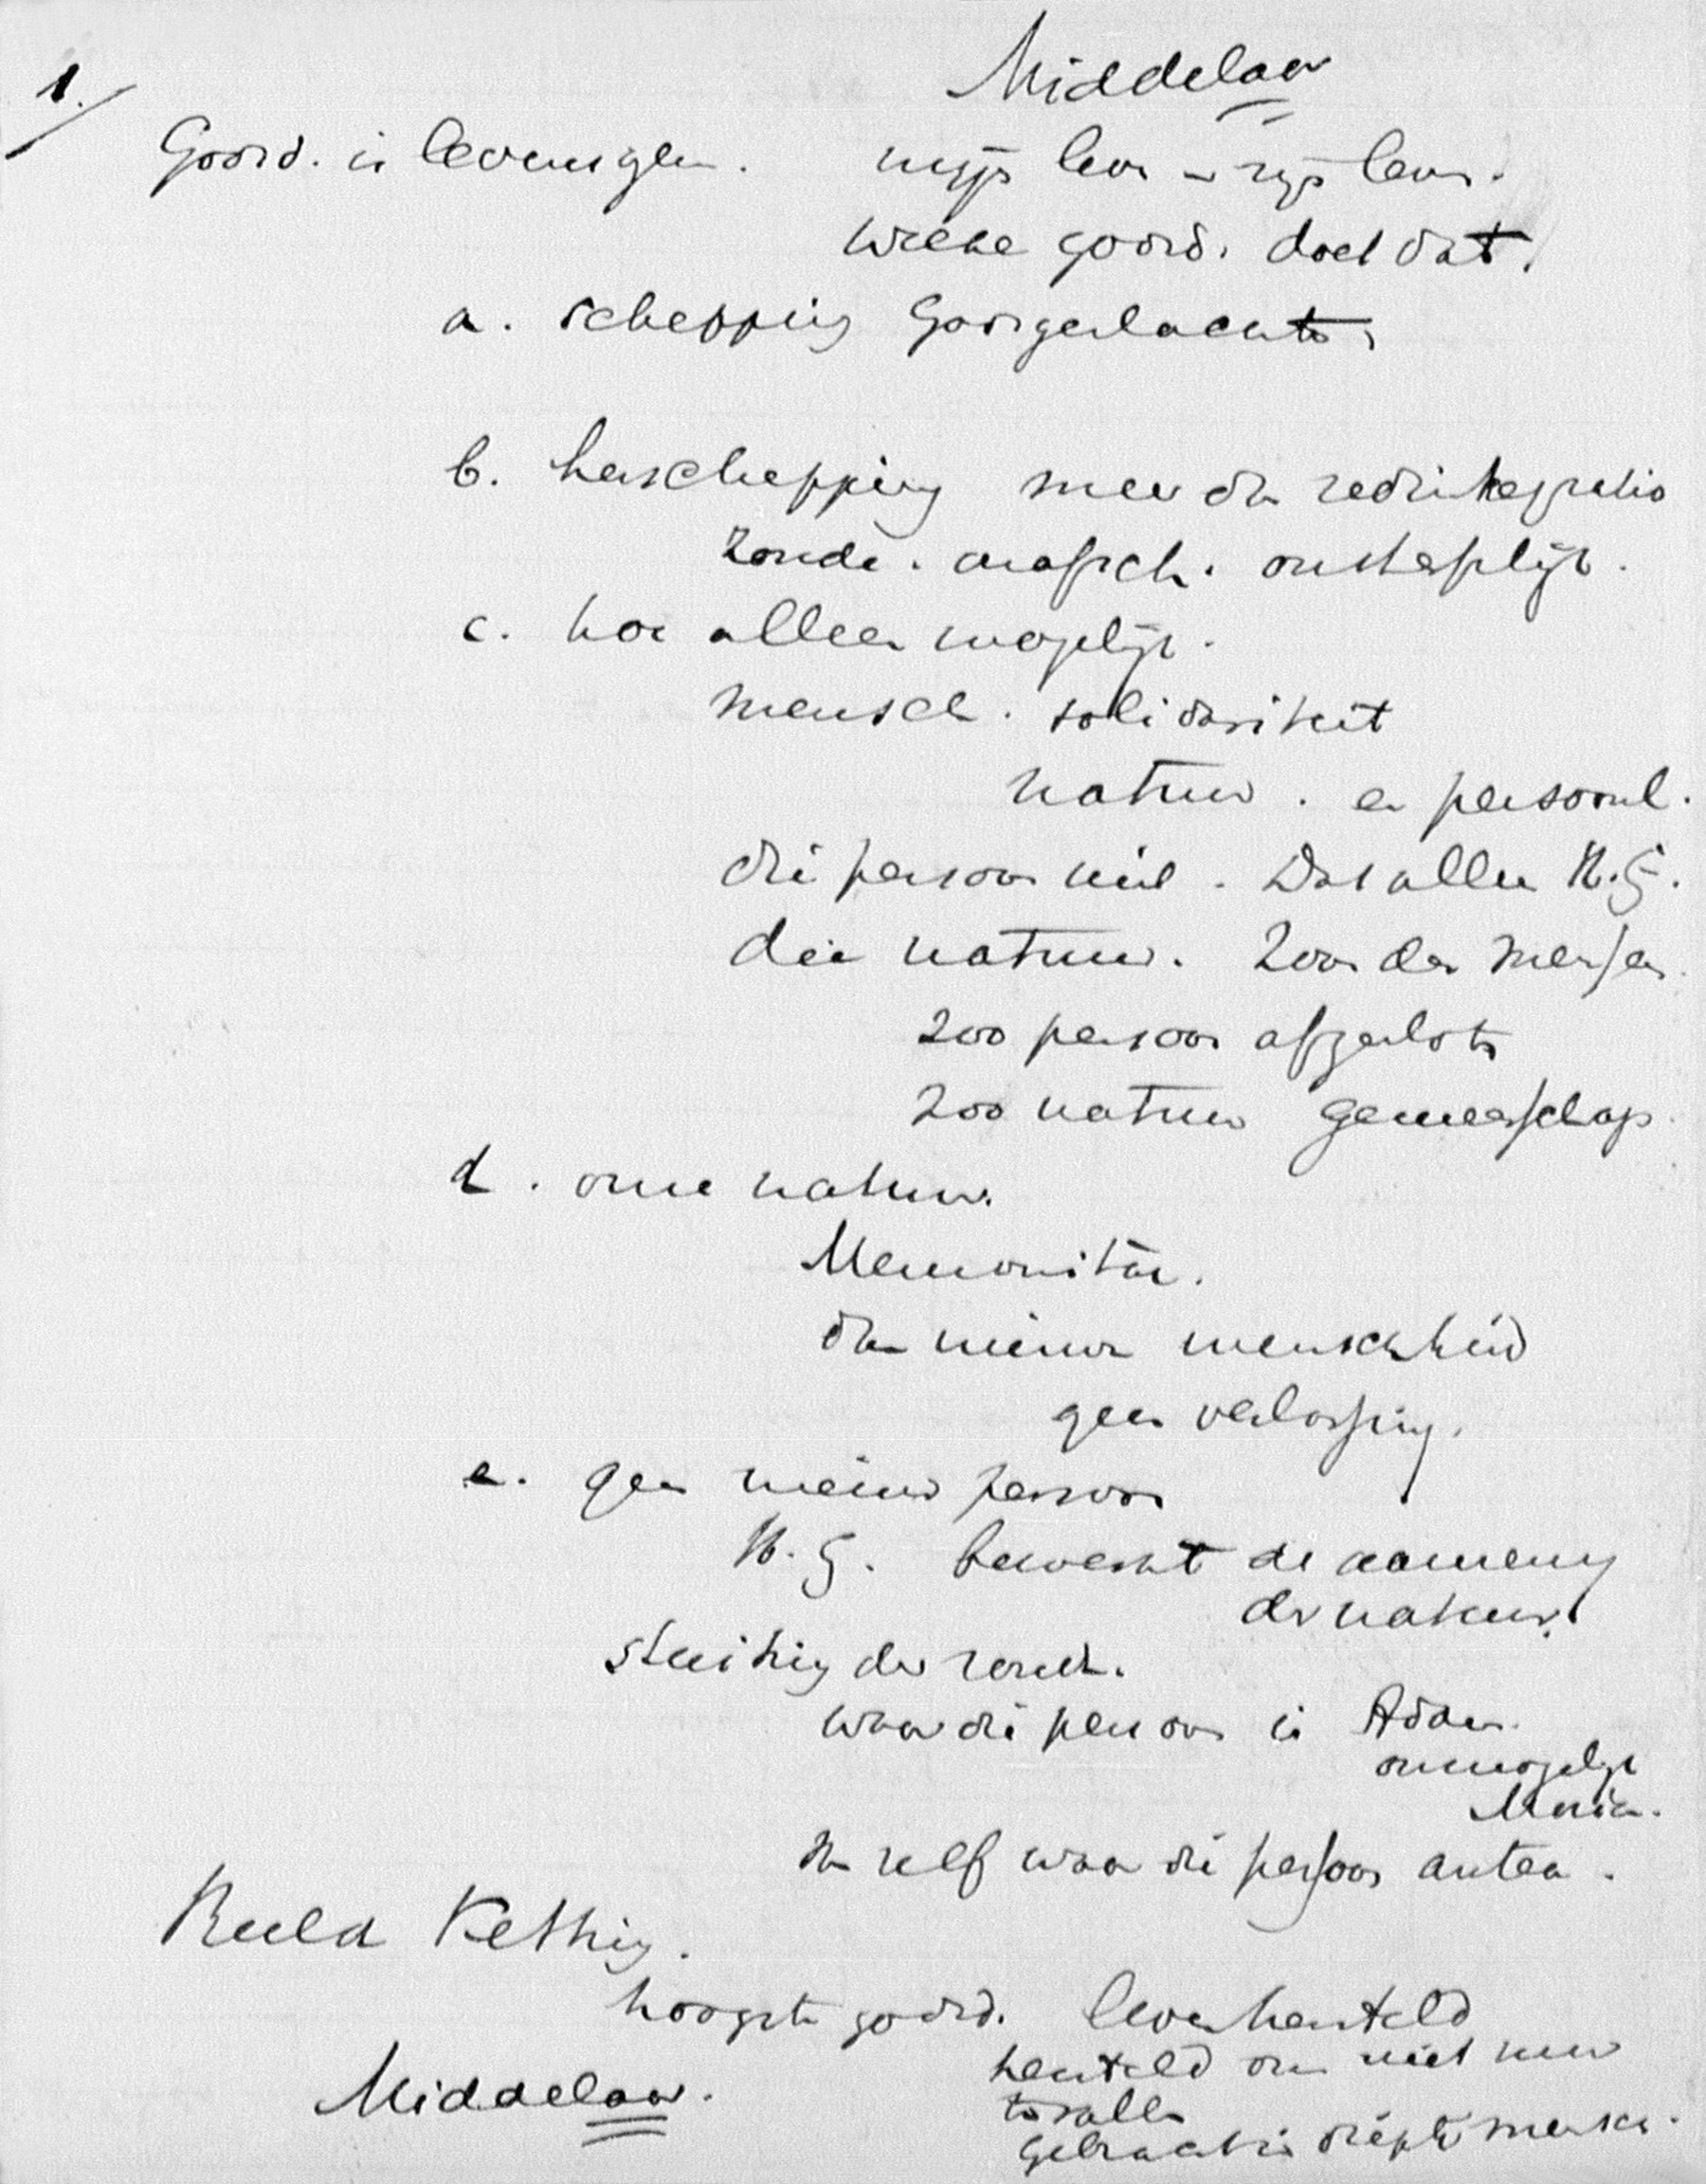 Middelaar
1.
Godsd. is levensgem. mijn leven – zijn leven.
welke godsd. doet dat.
a. schepping Gods geslacht
b. herschepping meer dan redintegratio
zonde. onsterflijk.
c. hoe alleen mogelijk.
mensch. solidariteit
natuur. en persoonl.
die persoon niet. Dat alleen H.G.
die natuur. Zoon des Menschen
zoo persoon afgesloten
zoo natuur gemeenschap
d. onze natuur.
Mennoniten.
dan nieuwe menschheid
geen verlossing.
e. geen nieuw persoon
H.G. bewerkt de aanneming
der natuur.
stuiting der zonde.
waar die persoon in Adam.
onmogelijk
Maria.
Hij zelf was die persoon antea.
Ketting.
hoogste godsd. leven hersteld
hersteld om niet meer
te vallen
gebracht in diepte mensch.
Middelaar.